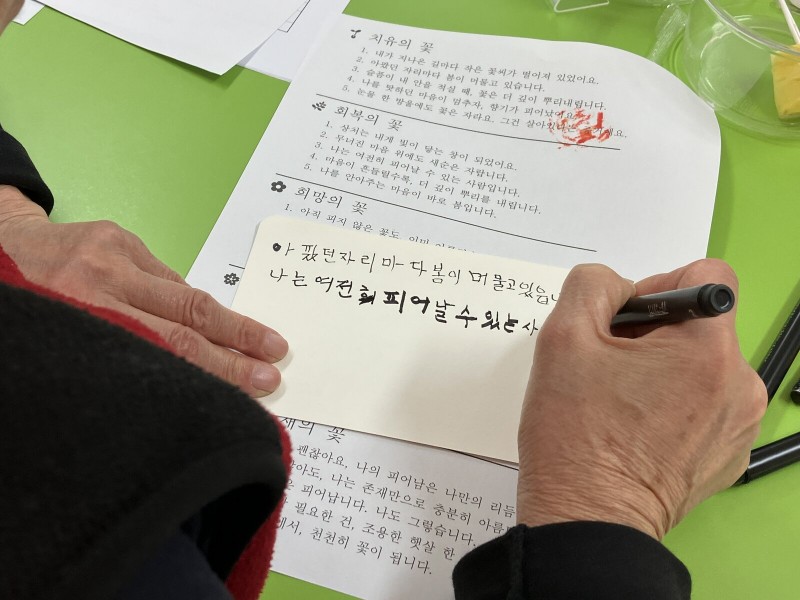 치유의 꽃
1. 내가 지나온 길마다 작은 꽃씨가 떨어져 있었어요.
2. 아팠던 자리마다 봄이 머물고 있습니다.
3. 슬픔이 내 안을 적실 때, 꽃은 더 깊이 뿌리내립니다.
4. 나를 탓하던 마음이 멈추자, 향기가 피어났어요.
5. 눈물 한 방울에도 꽃은 자라요. 그건 살아있
회복의 꽃
1. 상처는 내게 빛이 닿는 창이 되었어요.
2. 무너진 마음 위에도 새순은 자랍니다.
3. 나는 여전히 피어날 수 있는 사람입니다.
4. 마음이 흔들릴수록, 더 깊이 뿌리를 내립니다.
5. 나를 안아주는 마음이 바로 봄입니다.
희망의 꽃
1. 아직 피지 않은 꽃도,
아팠던자리마다봄이 머물고있습니
나는 여전히 피어날 수 있는 사
의 꽃
괜찮아요, 나의 피어남은 나만의 리듬
않아도, 나는 존재만으로 충분히 아름
피어납니다. 나도 그렇습니다.
필요한 건, 조용한 햇살 한
에서, 천천히 꽃이 됩니다.